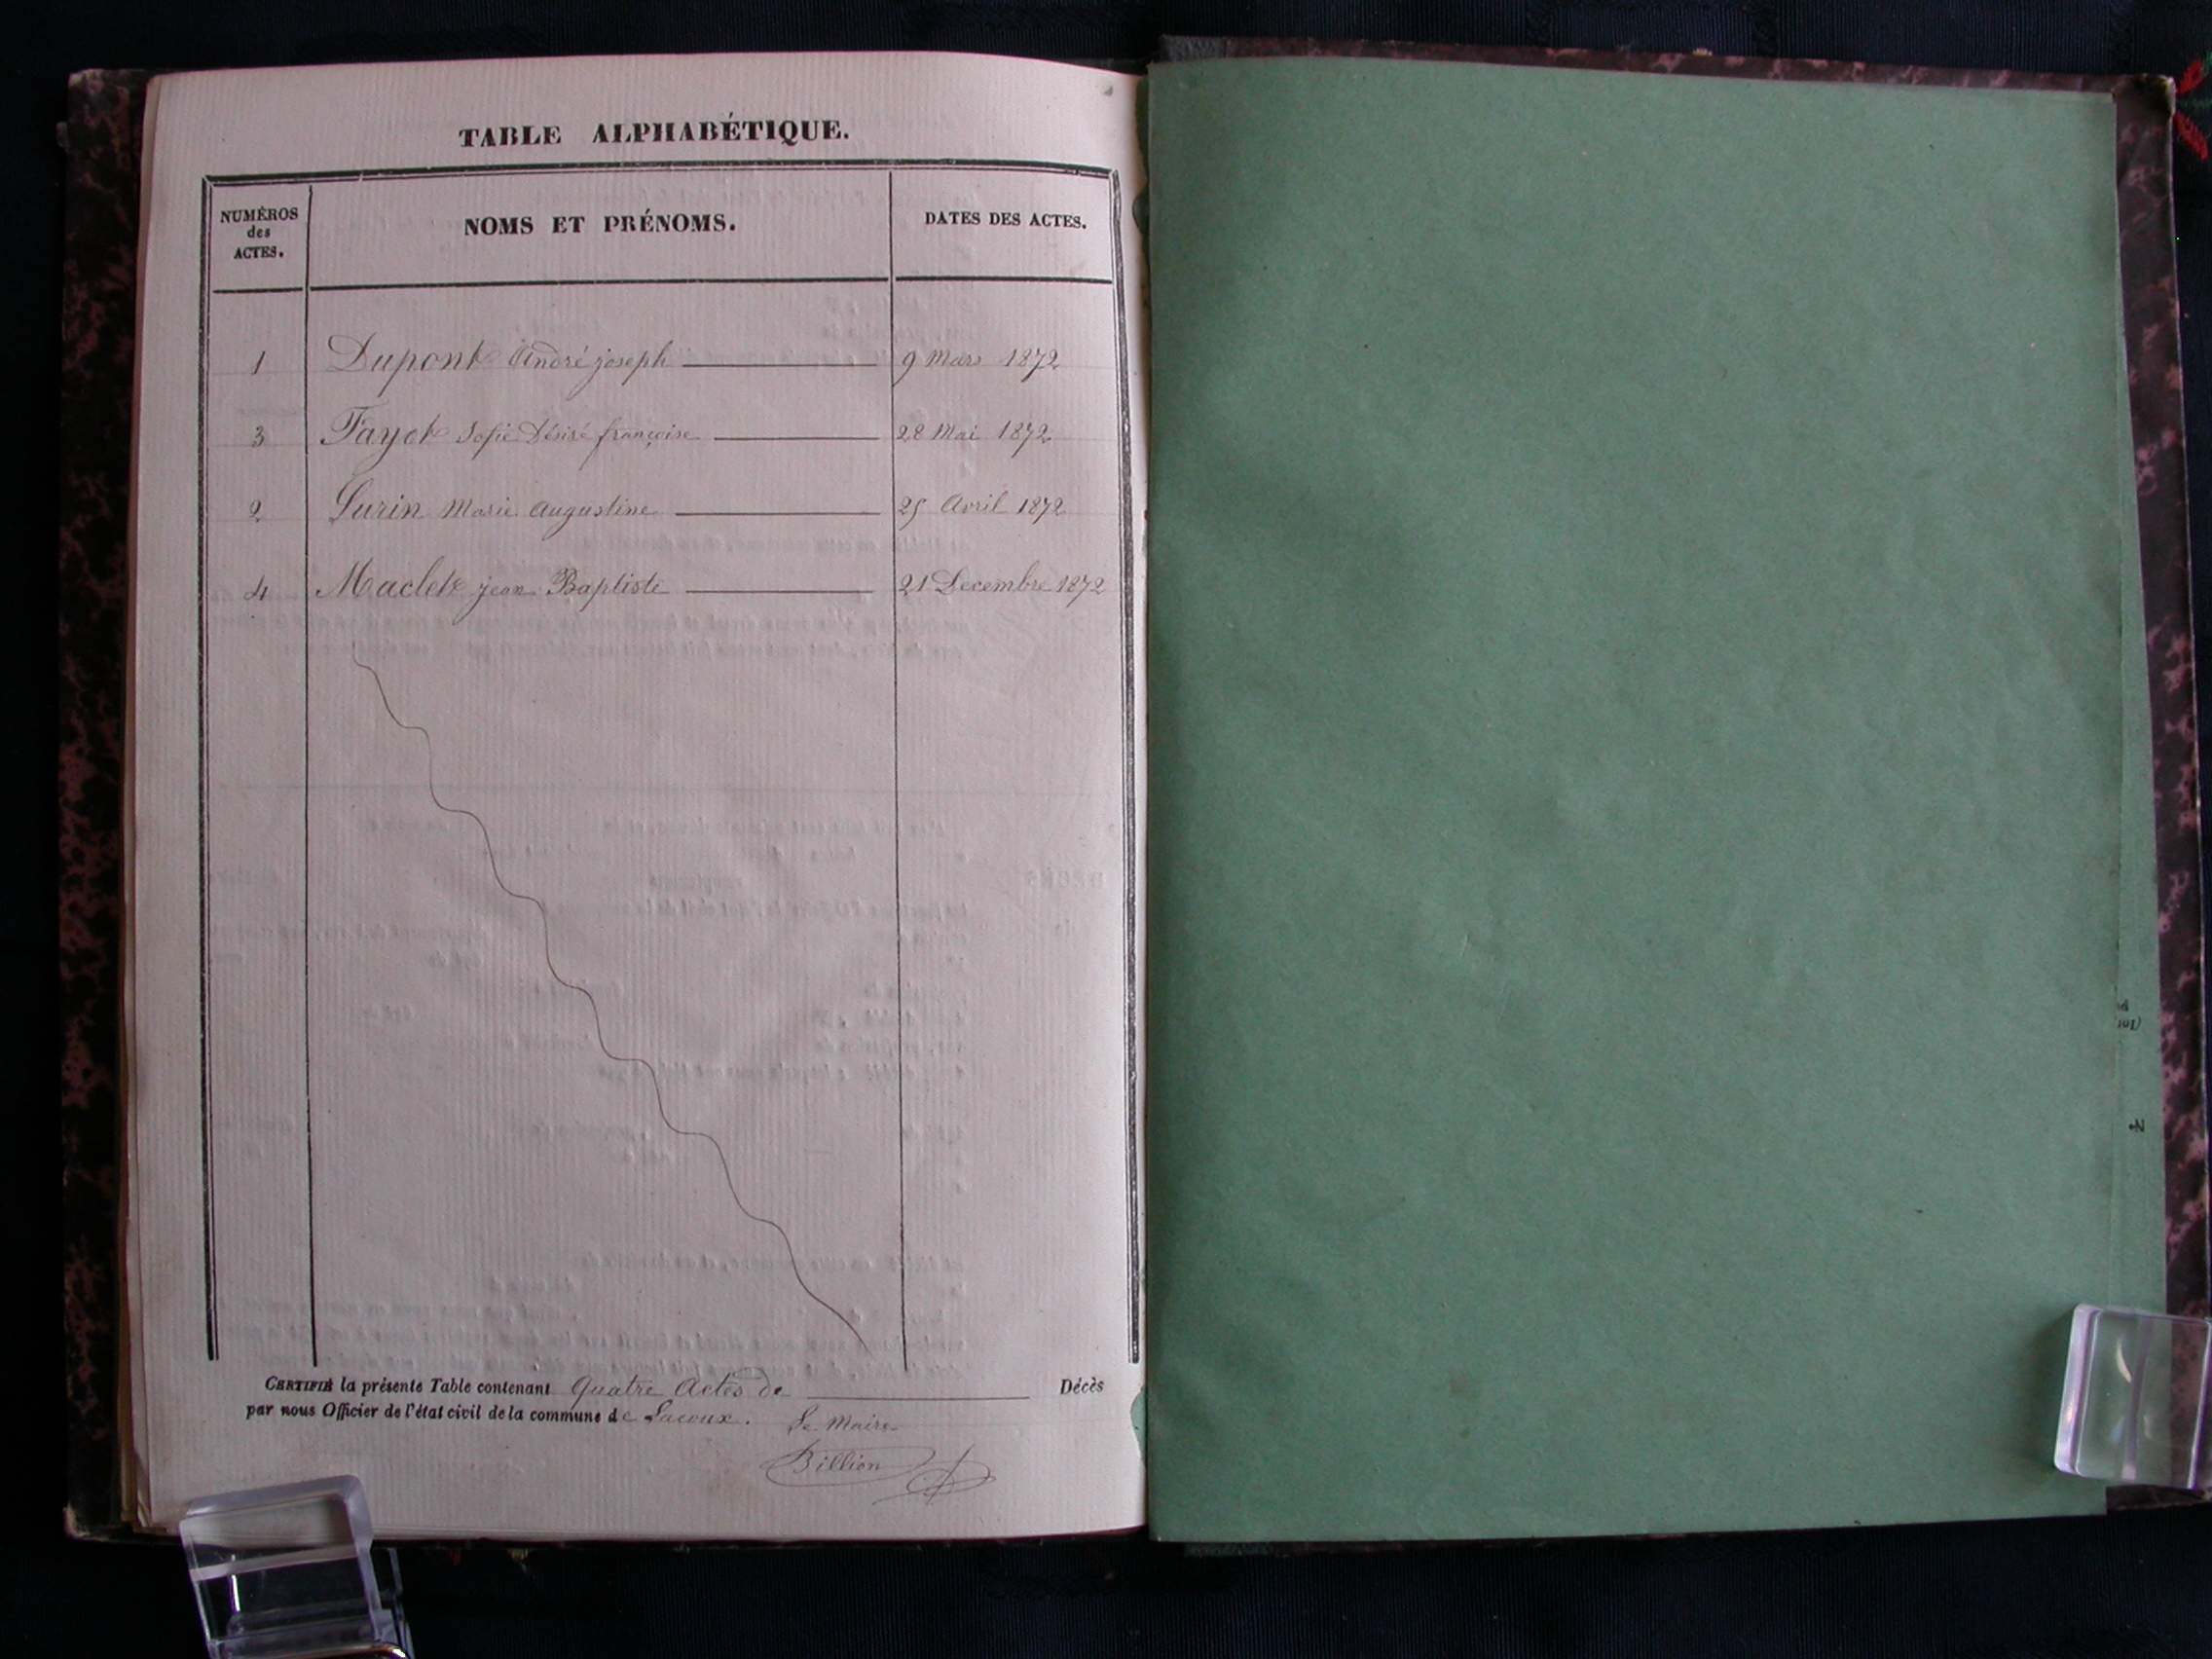 TABLE ALPHABÉTIQUE.
NUMÉROS des ACTES. NOMS ET PRÉNOMS. DATES DES ACTES.
1 Dupont André joseph 9 Mars 1872
3 Fayet Sofie Désiré françoise 28 Mai 1872
2 Gurin Marie Augustine 25 Avril 1872
4 Maclet jean Baptiste 21 Decembre 1872
CERTIFIÉ la présente Table contenant Quatre Actes de Décès
par nous Officier de l'état civil de la commune de Lacoux. Le Maire
Billion